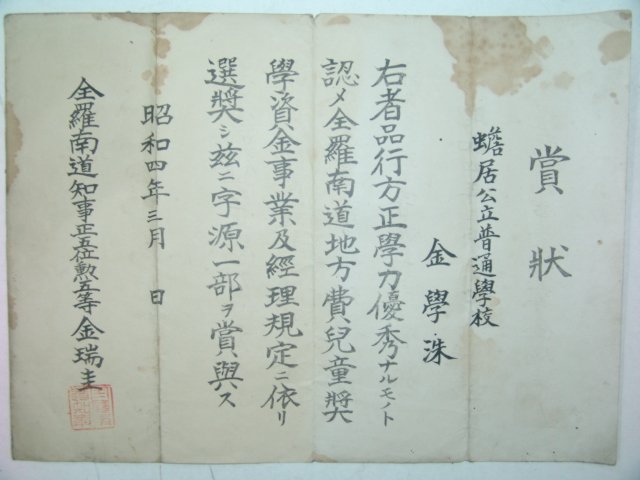 賞狀
蟾居公立普通學校
金學洙
右者品行方正學力優秀ナルモノト
認メ全羅南道地方費兒童奬
學資金事業及經理規定ニ依リ
選奬シ玆ニ字源一部ヲ賞與ス
昭和四年三月　日
全羅南道知事正五位勳五等金瑞圭